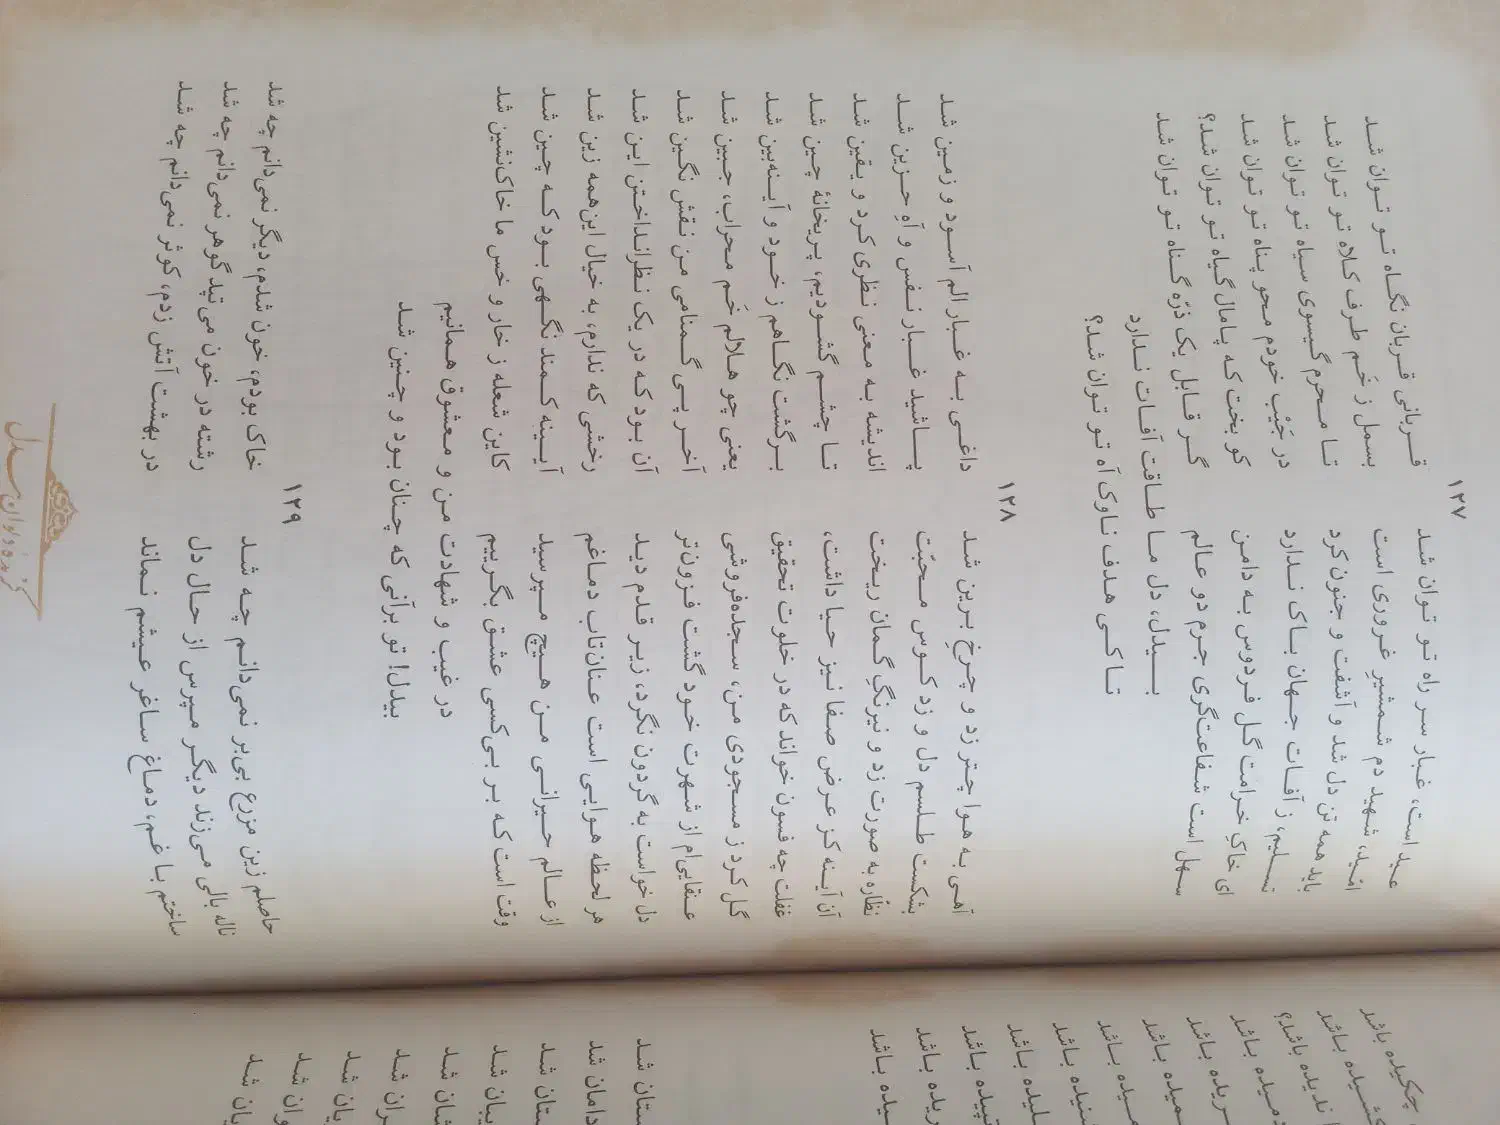 ۱۲۷
عید است، غبار سر راه تو توان شد قربانی قربان نگاه تو توان شد
امّید، شهید دم شمشیرِ غروری است بسمل ز خَم طرف کلاه تو توان شد
باید همه تن دل شد و آشفت و جنون کرد تا محرم گیسوی سیاه تو توان شد
تسلیم، ز آفات جهان باک ندارد در جَیْب خودم محو پناه تو توان شد
ای خاکِ خرامت گل فردوس به دامن کو بخت که پامال گیاه تو توان شد؟
سهل است شفاعت‌گری جرم دو عالم گر قابل یک ذرّه گناه تو توان شد
بیدل، دل ما طاقت آفات ندارد
تا کی هدف ناوک آه تو توان شد؟
۱۲۸
آهی به هوا چتر زد و چرخِ برین شد داغی به غبار الم آسود و زمین شد
بشکست طلسم دل و زد کوس محبّت پاشید غبار نفس و آهِ حزین شد
نظّاره به صورت زد و نیرنگِ گمان ریخت اندیشه به معنی نظری کرد و یقین شد
آن آینه کز عرض صفا نیز حیا داشت، تا چشم گشودیم، پریخانهٔ چین شد
غفلت چه فسون خواند که در خلوت تحقیق برگشت نگاهم ز خود و آینه‌بین شد
گل کرد ز مسجودی من، سجده‌فروشی یعنی چو هلالم خَم محراب، جبین شد
عنقایی‌ام از شهرت خود گشت فزون‌تر آخر پی گمنامی من نقش نگین شد
دل خواست به گردون نگرد، زیر قدم دید آن بود که در یک نظرانداختن این شد
هر لحظه هوایی است عنان‌تاب دماغم رخشی که ندارم، به خیال این‌همه زین شد
از عالم حیرانی من هیچ مپرسید آیینه کمند نگهی بود که چین شد
وقت است که بر بی‌کسی عشق بگرییم کاین شعله ز خار و خس ما خاک‌نشین شد
در غیب و شهادت من و معشوق همانیم
بیدل! تو برآنی که چنان بود و چنین شد
۱۲۹
حاصلم زین مزرع بی‌بر نمی‌دانم چه شد خاک بودم، خون شدم، دیگر نمی‌دانم چه شد
ناله بالی می‌زند دیگر مپرس از حال دل رشته در خون می‌تپد گوهر نمی‌دانم چه شد
ساختم با غم، دماغ ساغر عیشم نماند در بهشت آتش زدم، کوثر نمی‌دانم چه شد